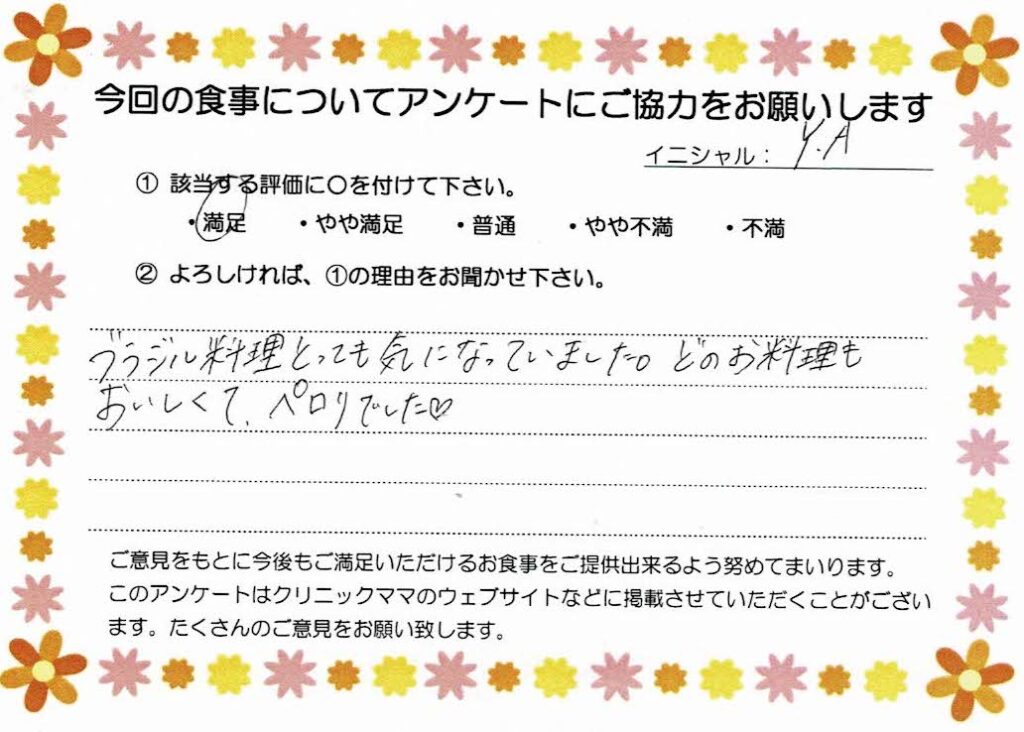 今回の食事についてアンケートにご協力をお願いします
イニシャル： Y.A
① 該当する評価に〇を付けて下さい。
・満足 ・やや満足 ・普通 ・やや不満 ・不満
② よろしければ、①の理由をお聞かせ下さい。
ブラジル料理とっても気になっていました。どのお料理も
おいしくて、ペロリでした♡
ご意見をもとに今後もご満足いただけるお食事をご提供出来るよう努めてまいります。
このアンケートはクリニックママのウェブサイトなどに掲載させていただくことがござい
ます。たくさんのご意見をお願い致します。